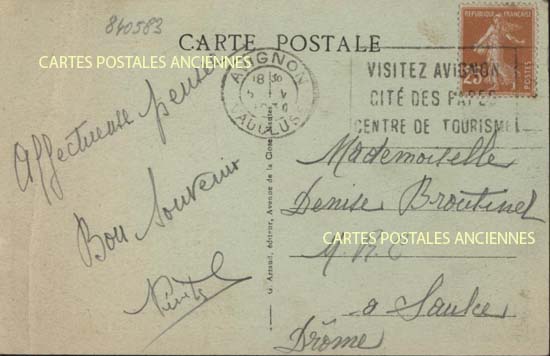 840583
CARTE POSTALE
CARTES POSTALES ANCIENNES
REPUBLIQUE FRANÇAISE
25
POSTES
AVIGNON
18
VAUCLUSE
VISITEZ AVIGNON
CITÉ DES PAPES
CENTRE DE TOURISME
Affectueuse pensée
Bon Souvenir
G. Artaud, éditeur, Avenue de la Close, Nantes
Mademoiselle
Denise Broutinel
CARTES POSTALES ANCIENNES
à Saulce
Drôme